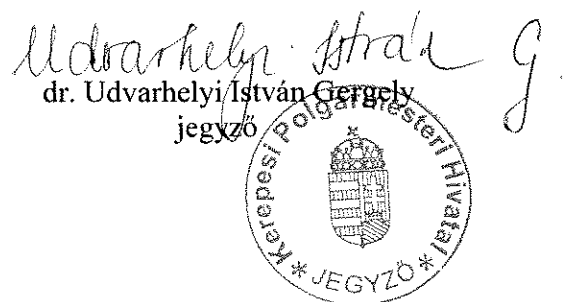 Udvarhelyi István G.
dr. Udvarhelyi István Gergely
jegyző
* Kerepesi Polgármesteri Hivatal *
JEGYZŐ